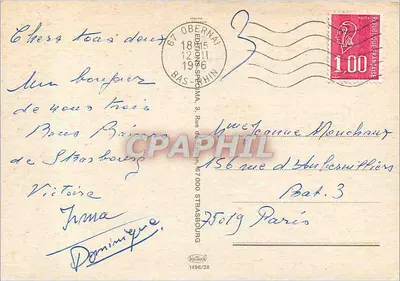 Chers tous deux
Un bonjour
de nous trois
Bons Baisers
de Strasbourg
Victoire
Irma
Dominique
67 OBERNAI
18 H 15
12 - 11
1976
BAS-RHIN
3
POSTES
REPUBLIQUE FRANÇAISE
1.00
EDITIONS SPECMA, 3, Rue 67000 STRASBOURG
CPAPHIL
Mme Jeanne Menchaux
156 rue d'Aubervilliers
Bat. 3
75019 Paris
1496/28